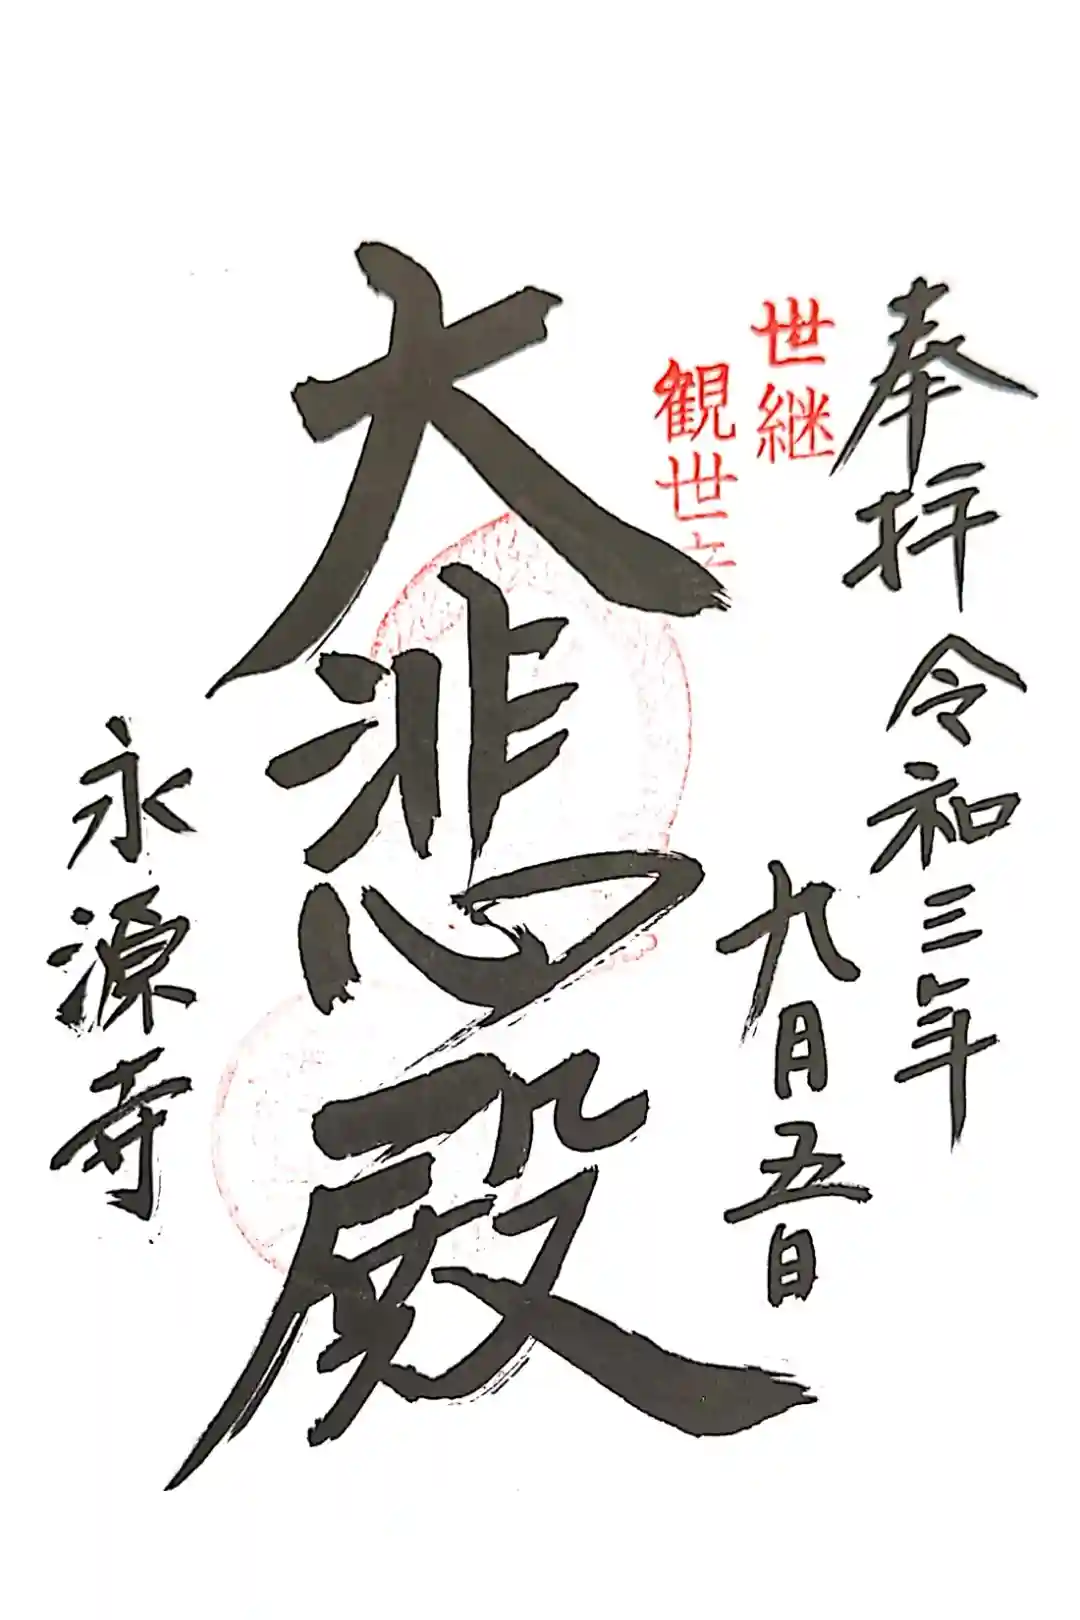 奉拝 令和三年
九月五日
世継
観世
大悲殿
永源寺